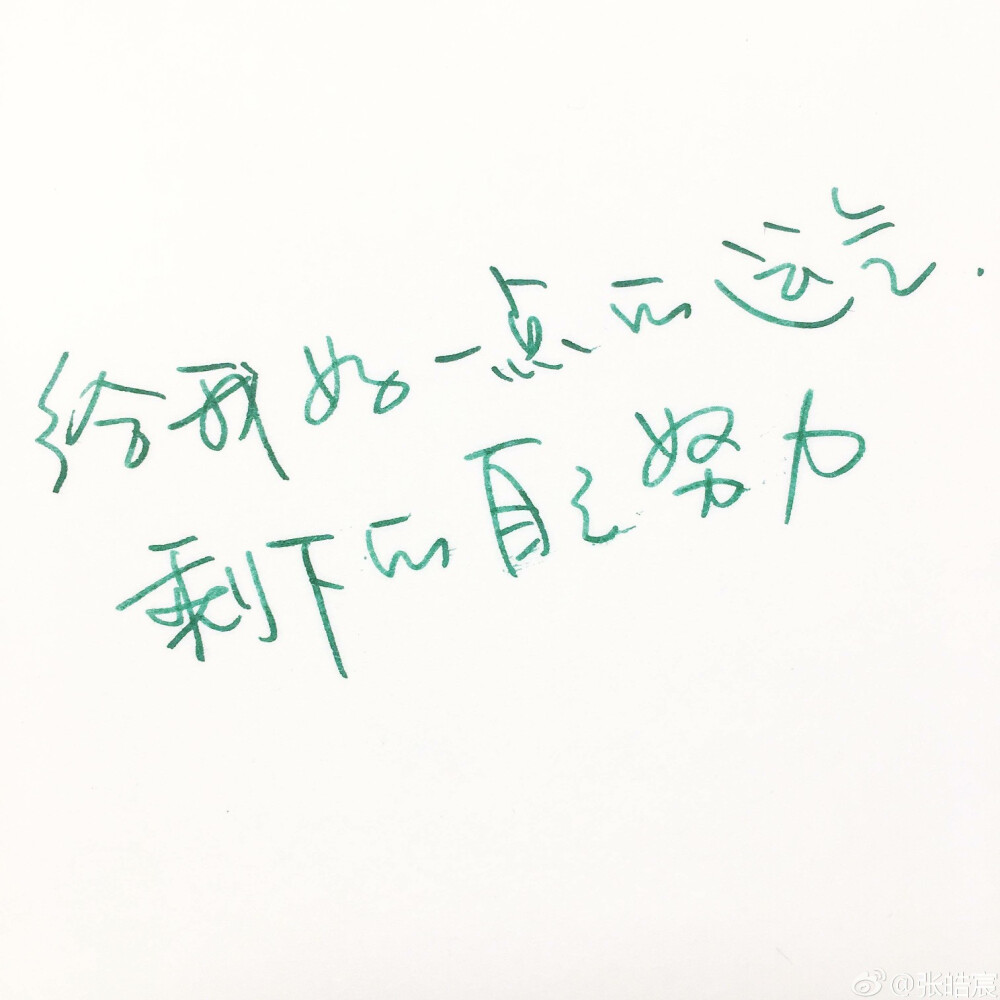 给我好一点的运气.
剩下的自己努力
@张皓宸